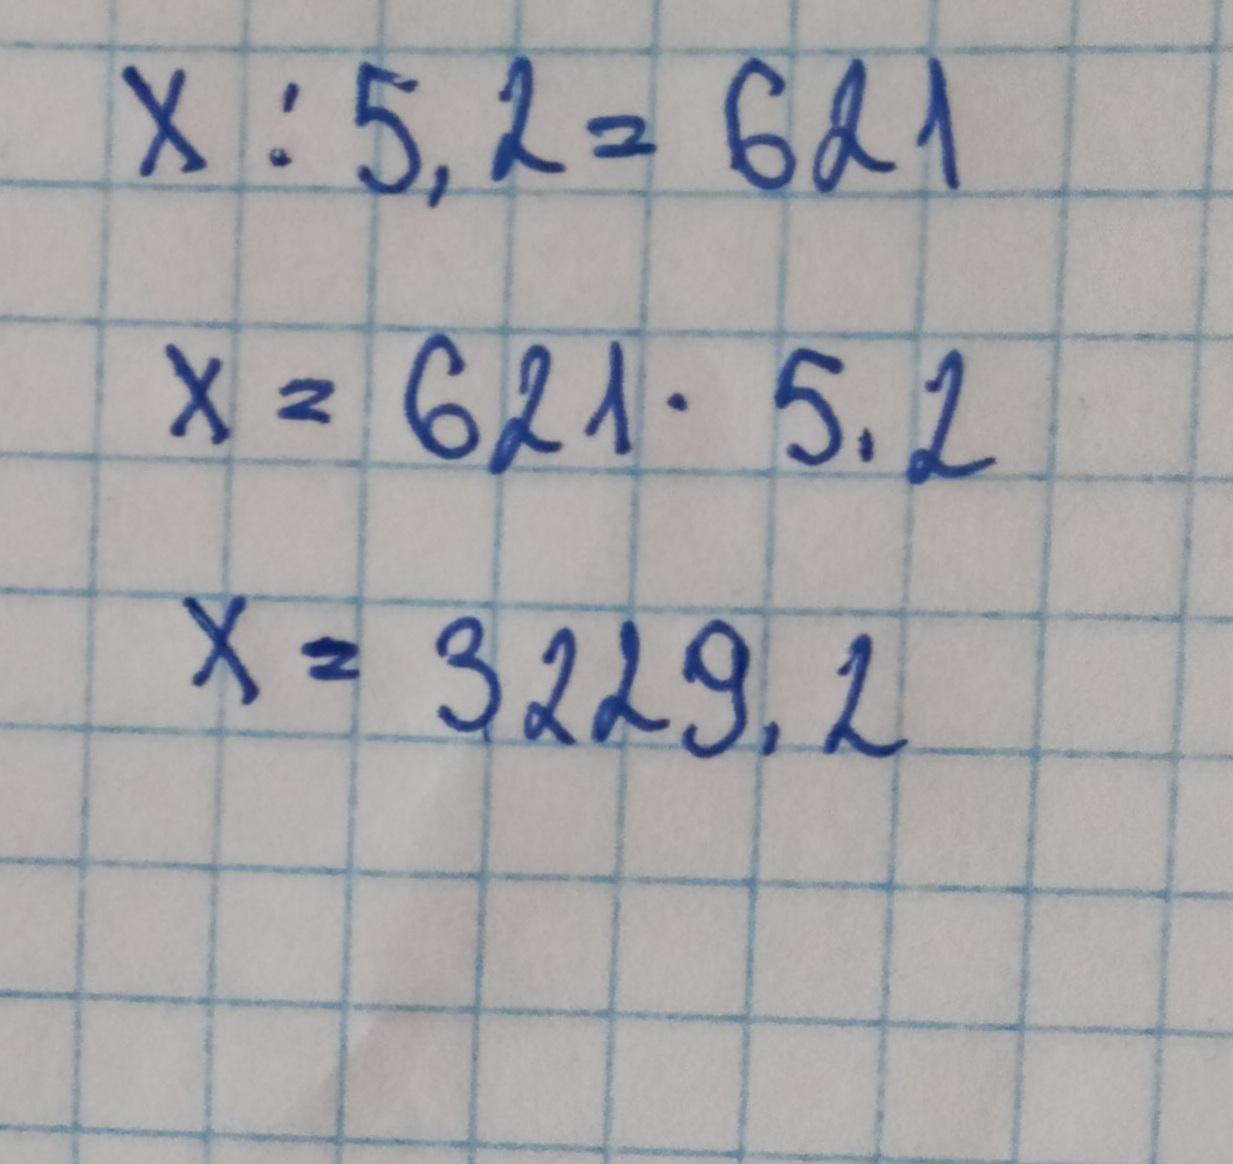 x : 5,2 = 621
x = 621 · 5,2
x = 3229,2